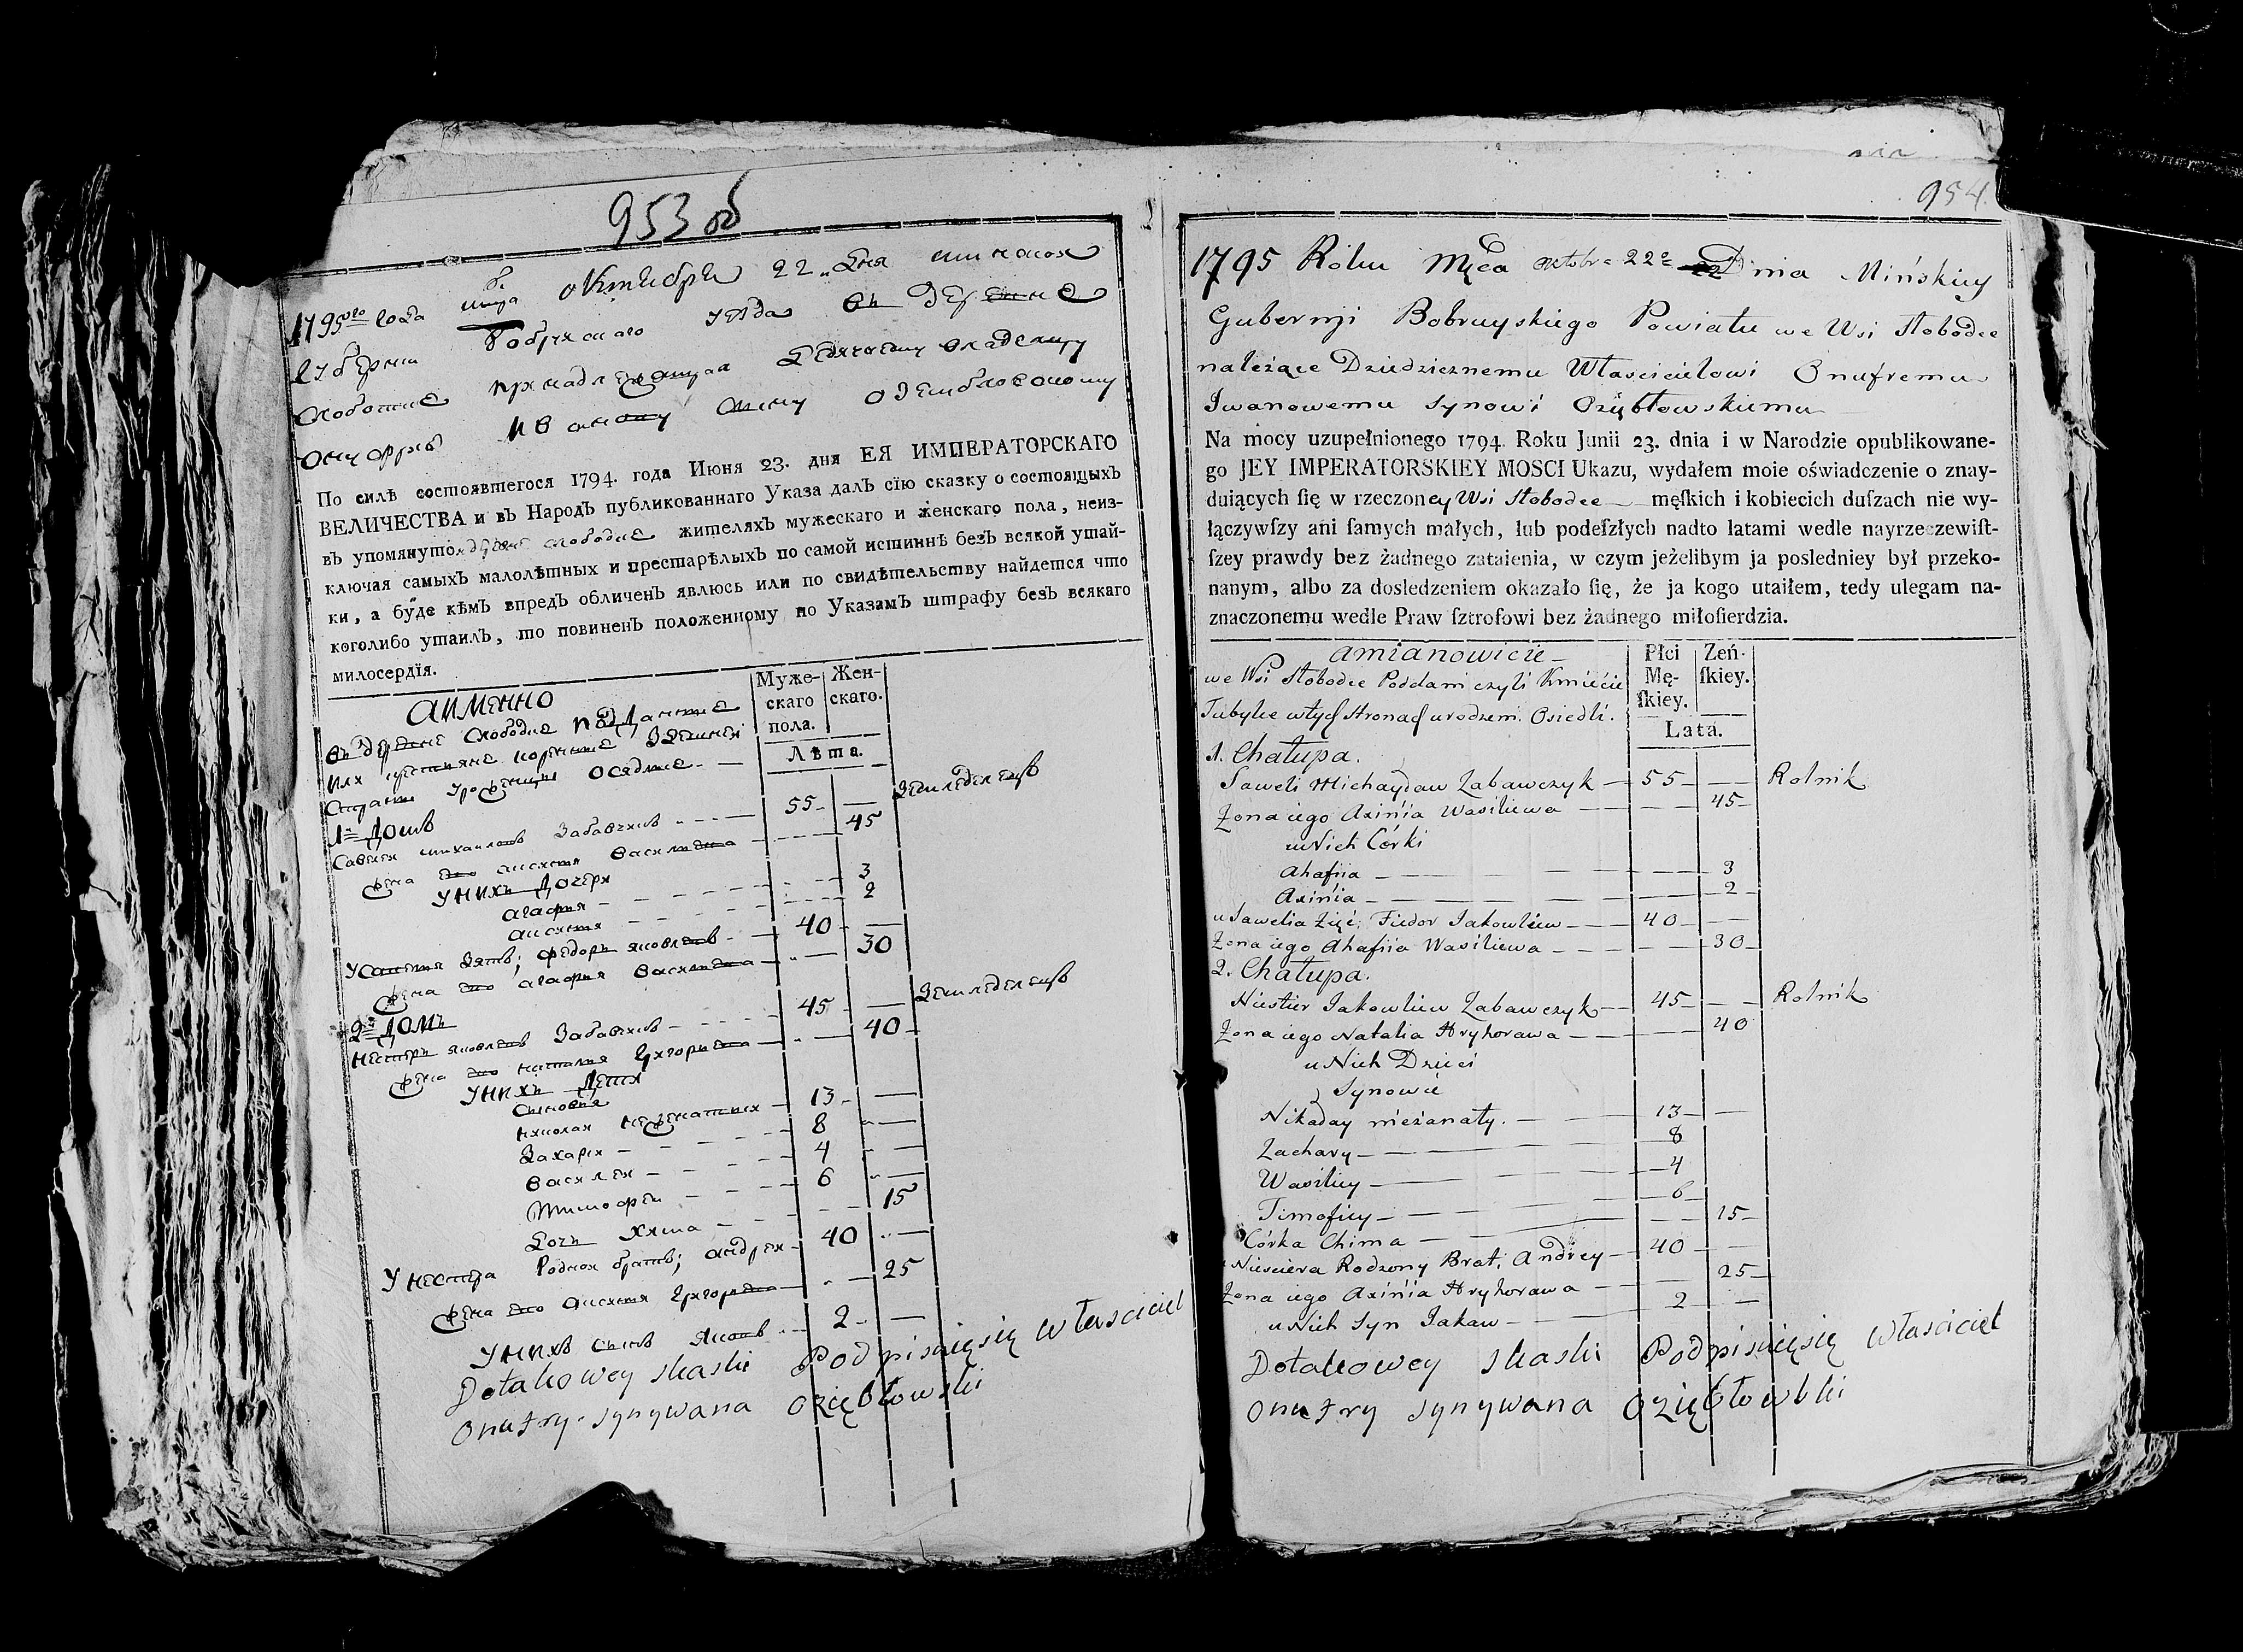 953 об
1795го года мца октября 22 дня минской
губернии Бобруйскаго уезда въ деревне
Слободке принадлежащая владелцу
Онуфрию Ивановому сыну Озембловскому
По силѣ состоявшегося 1794. года Июня 23. дня ЕЯ ИМПЕРАТОРСКАГО
ВЕЛИЧЕСТВА и въ Народъ публикованнаго Указа далъ сїю сказку о состоящыхъ
въ упомянутой деревне слободке жителяхъ мужескаго и женскаго пола, неиз-
ключая самыхъ малолѣтных и престарѣлыхъ по самой истиннѣ безъ всякой утай-
ки, а буде кѣмъ впредъ обличенъ явлюсь или по свидѣтельству найдется что
коголибо утаилъ, то повиненъ положенному по Указамъ штрафу безъ всякаго
милосердїя.
АИМЕННО
Муже-
скаго
пола.
Жен-
скаго.
Лѣта.
въ деревне слободке подданые
или крестьяне коренные здешней
стараны урожецы оседлые —
1й Домъ
Савелей михаиловъ Забавчикъ — 55 — земледелецъ
жена ево аксиния василиева — 45
У НИХЪ Дочери
агафия — 3
аксиния — 2
У Савелия зять; федоръ яковлевъ — 40 —
жена ево агафия василиева — 30
2й ДОМЪ
Нестеръ яковлевъ Забавчикъ — 45 — земледелецъ
жена ево наталия григориева — 40
У НИХЪ Дети
сыновия
николай неженатыи — 13 —
Захарей — 8 —
василей — 4 —
тимофей — 6 —
дочь Хима — 15
У нестера родной братъ; андрей 40 —
жена ево аксиния григориева — 25
У НИХЪ сынъ яковъ — 2 —
Dotakowey skaski Podpisuięsię właściciel
Onufry synywana Oziębłowski
954.
1795 Roku Mca Oktobr 22 Dnia Mińskiey
Gubernji Bobruyskiego Powiatu we Wsi Słobodce
należące Dziedzicznemu Właścicielowi Onufremu
Iwanowemu synowi Oziębłowskiemu
Na mocy uzupełnionego 1794. Roku Junii 23. dnia i w Narodzie opublikowane-
go JEY IMPERATORSKIEY MOSCI Ukazu, wydałem moie oświadczenie o znay-
duiących ſię w rzeczoney Wsi Słobodce — męſkich i kobiecich duſzach nie wy-
łączywſzy ani ſamych małych, lub podeſzłych nadto latami wedle nayrzeczewiſt-
ſzey prawdy bez żadnego zataienia, w czym jeżelibym ja posledniey był przeko-
nanym, albo za dosledzeniem okazało ſię, że ja kogo utaiłem, tedy ulegam na-
znaczonemu wedle Praw ſztrofowi bez żadnego miłoſierdzia.
amianowicie —
Płci
Mę-
ſkiey.
Zeń-
ſkiey.
Lata.
we Wsi Słobodce Poddani czyli Kmiécie
Tubylce wtych Stronach urodzeni Osiedli.
1. Chałupa.
Saweli Michayław Zabawczyk — 55 — Rolnik
Żona iego Axińia Wasiliewa — 45
u Nich Córki
Ahafiia — 3
Axińia — 2
u Sawelia Zięć; Fiedor Jakowlew — 40 —
Żona iego Ahafiia Wasiliewa — 30
2. Chałupa.
Niestier Jakowliew Zabawczyk — 45 — Rolnik
Żona iego Natalia Hryhorawa — 40
u Nich Dzieci
Synowie
Nikałay nieżanaty. — 13 —
Zachary — 8
Wasiliey — 4
Timofiey — 6
Córka Chima — 15
u Niesciera Rodzony Brat; Andrey — 40 —
Żona iego Axińia Hryhorawa — 25
u Nich Syn Jakaw — 2 —
Dotakowey skaski Podpisuięsię właściciel
Onufry synywana Oziębłowski